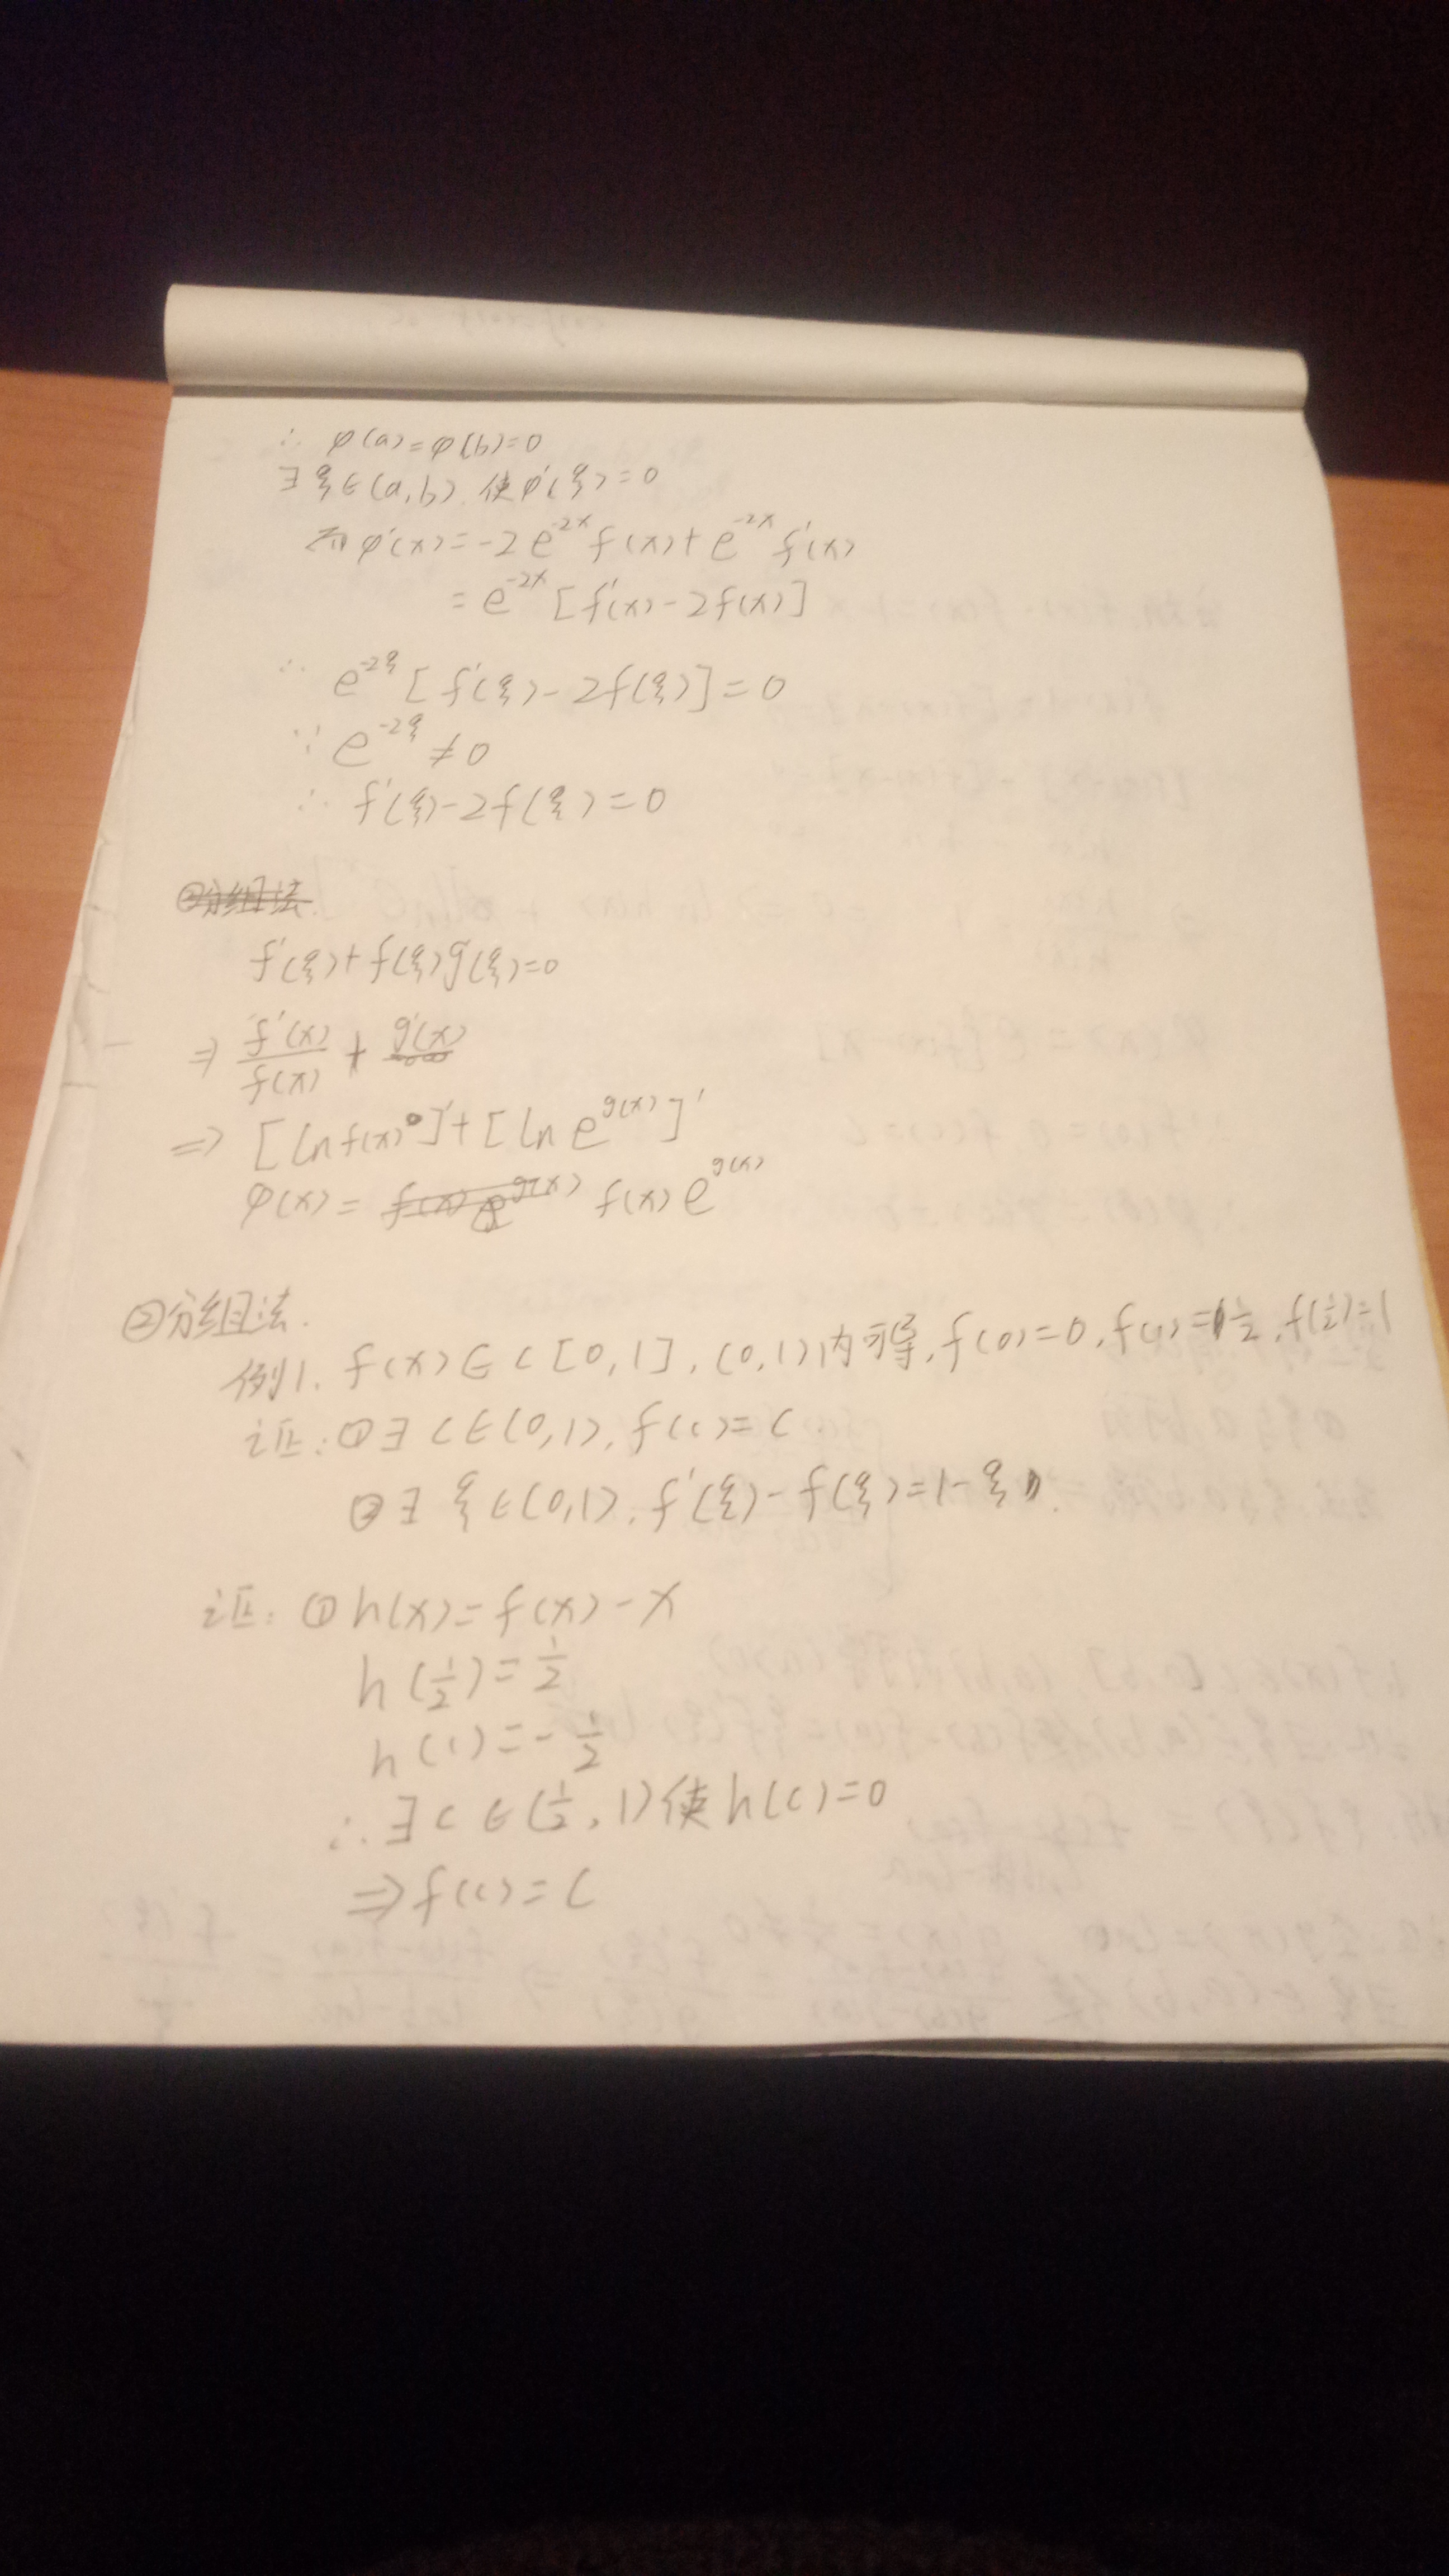 ∴ φ(a)=φ(b)=0
∃ξ∈(a,b).使φ'(ξ)=0
而φ'(x)=-2e^{-2x}f(x)+e^{-2x}f'(x)
=e^{-2x}[f'(x)-2f(x)]
∴ e^{-2ξ}[f'(ξ)-2f(ξ)]=0
∵ e^{-2ξ}≠0
∴ f'(ξ)-2f(ξ)=0
②分组法.
f'(ξ)+f(ξ)g'(ξ)=0
⇒ \frac{f'(x)}{f(x)}+g'(x)
⇒ [ln f(x)]'+[ln e^{g(x)}]'
φ(x)= f(x)e^{g(x)}
②分组法.
例1. f(x)∈C[0,1],(0,1)内可导,f(0)=0,f(1)=\frac{1}{2},f(\frac{1}{2})=1
证:①∃c∈(0,1),f(c)=c
②∃ξ∈(0,1),f'(ξ)-f(ξ)=1-ξ.
证:①h(x)=f(x)-x
h(\frac{1}{2})=\frac{1}{2}
h(1)=-\frac{1}{2}
∴∃c∈(\frac{1}{2},1)使h(c)=0
⇒f(c)=c